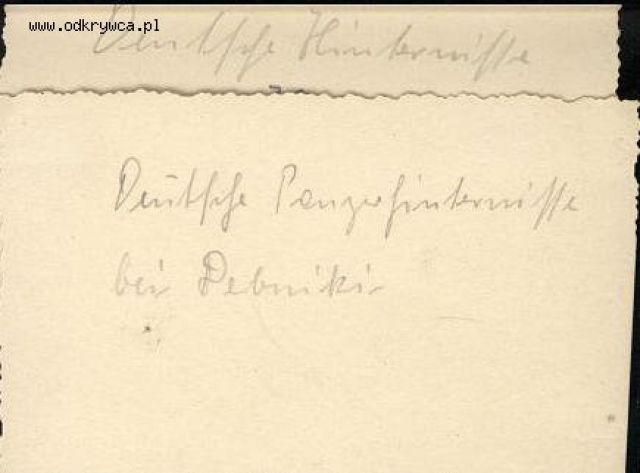 www.odkrywca.pl
Deutsche Hinternisse
Deutsche Panzerhinternisse
bei Debniki